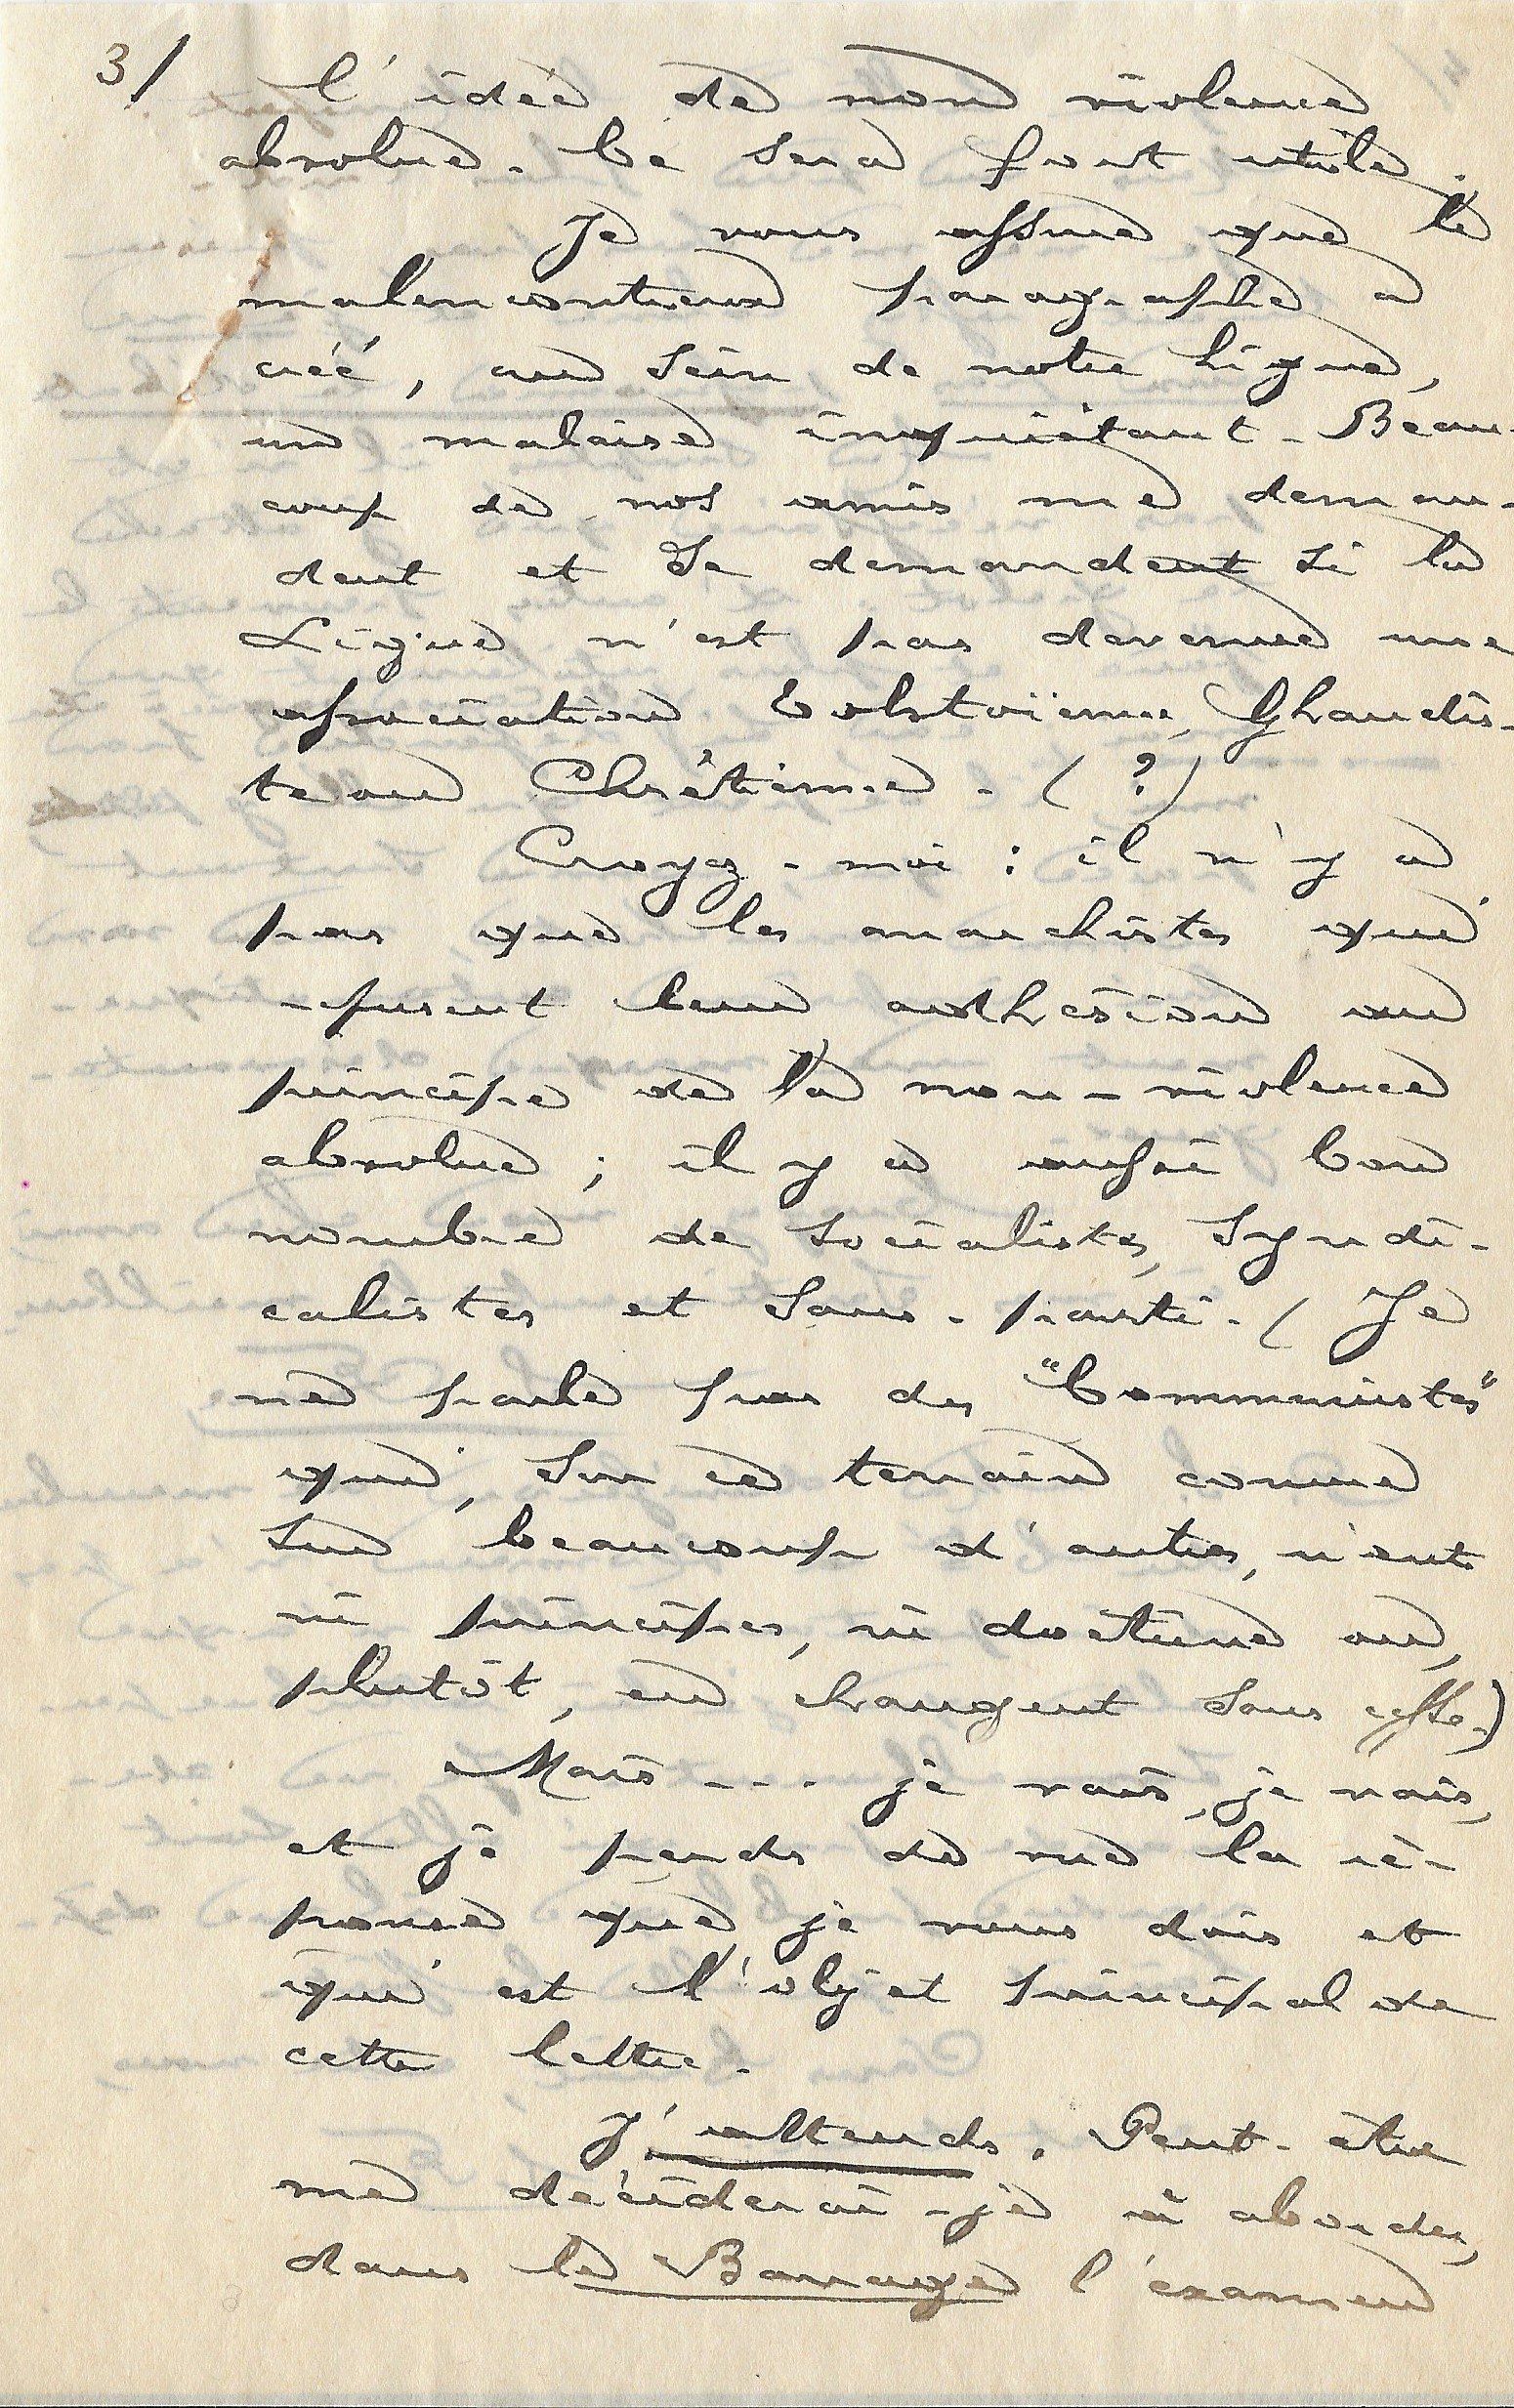 3/ l'idée de non violence
absolue. Ce sera fort utile.
Je vous assure que le
malencontreux paragraphe a
créé, au sein de notre Ligue,
un malaise inquiétant. Beau-
coup de nos amis me deman-
dent et se demandent si la
Ligue n'est pas devenue une
association Tolstoïenne, Ghandis-
te ou Chrétienne. (?)
Croyez-moi : il n'y a
pas que les anarchistes qui
refusent leur adhésion au
principe de la non-violence
absolue ; il y a aussi bon
nombre de socialistes, syndi-
calistes et sans-parti. (Je
ne parle pas des "Communistes"
qui, sur ce terrain comme
sur beaucoup d'autres, n'ont
ni principes, ni doctrine ou,
plutôt, en changent sans cesse.)
Mais --- je vais, je vais,
et je perds de vue la ré-
ponse que je vous dois et
qui est l'objet principal de
cette lettre.
J'attends. Peut-être
me déciderai-je à aborder,
dans le Barrage l'examen